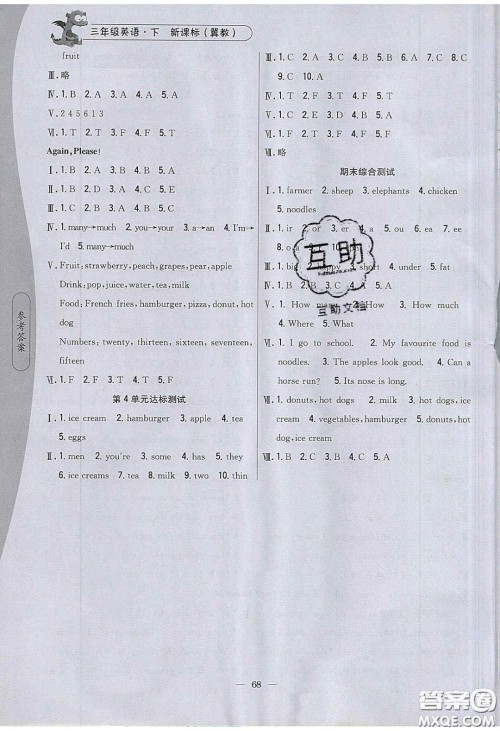 三年级英语·下 新课标(冀教)
fruit
Ⅲ. 略
Ⅳ. 1. A 2. A 3. A 4. A 5. A
Ⅴ. 2 4 5 6 1 3
Ⅵ. 1. T 2. T 3. F 4. F 5. F
Again, Please!
Ⅰ. 1. B 2. D 3. A 4. B 5. C
Ⅱ. 1. B 2. D 3. A 4. E 5. C
Ⅲ. 1. B 2. A 3. C 4. A 5. A
Ⅳ. 1. many→much 2. you→your 3. a→an 4. I'm→
I'd 5. many→much
Ⅴ. Fruit: strawberry, peach, grapes, pear, apple
Drink: pop, juice, water, tea, milk
Food: French fries, hamburger, pizza, donut, hot
dog
Numbers: twenty, thirteen, sixteen, seventeen,
fifteen
Ⅵ. 1. F 2. T 3. T 4. T 5. F
第4单元达标测试
Ⅰ. 1. ice cream 2. hamburger 3. apple 4. tea
5. eggs
Ⅱ. 1. men 2. you're 3. some 4. has 5. they
6. ice creams 7. tea 8. milk 9. two 10. thin
Ⅲ. 1. C 2. A 3. B 4. A 5. A 6. A 7. B 8. A
9. C 10. A
Ⅳ. 1. T 2. F 3. T 4. F 5. T
Ⅴ. 1. B 2. C 3. D 4. E 5. A
Ⅵ. 1. B 2. B 3. A 4. A 5. A
Ⅶ. 1. F 2. F 3. T 4. F 5. T
Ⅷ. 略
期末综合测试
Ⅰ. 1. farmer 2. sheep 3. elephants 4. chicken
5. noodles
Ⅱ. 1. ir 2. or 3. er 5. ou 6. ea 7. ee
8. o 10.
Ⅲ. 1. big 3. short 4. under 5. fat
Ⅳ. 1. B 2. A 4. C 5. A
Ⅴ. 1. How many 3. How
4. Where 5. What
Ⅵ. 1. I go to school. 2. My favourite food is
noodles. 3. The apples look good. 4. Can a
horse run? 5. Its nose is long.
Ⅶ. 1. donuts, hot dogs 2. milk, hot dogs, ice
cream 4. vegetables, hamburgers, donuts, hot
dog, ice cream 5. fish
Ⅷ. 1. B 2. C 3. B 4. C 5. A
互助
互助文档
参考答案
68
答案圈
MXQE.COM